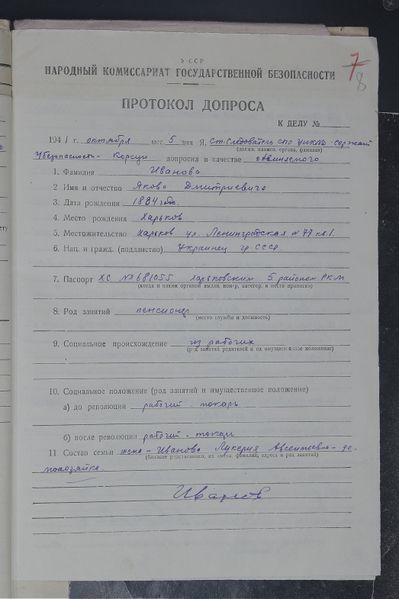 7
8
УССР
НАРОДНЫЙ КОМИССАРИАТ ГОСУДАРСТВЕННОЙ БЕЗОПАСНОСТИ
ПРОТОКОЛ ДОПРОСА
К ДЕЛУ №
1941 г. октября мес. 5 дня Я, ст. следователь спо сержант
(должн. наимен. органа, фамилия)
Госбезопасности допросил в качестве обвиняемого
1. Фамилия Иванова
2. Имя и отчество Якова Дмитриевича
3. Дата рождения 1884 года
4. Место рождения Харьков
5. Местожительство Харьков ул. Ленинградская № 77 кв. 1.
6. Нац. и гражд. (подданство) Украинец гр СССР
7. Паспорт ХС № 681055 Харьковским 5 районом РКМ
(когда и каким органом выдан, номер, категор. и место прописки)
8. Род занятий пенсионер
(место службы и должность)
9. Социальное происхождение из рабочих
(род занятий родителей и их имущественное положение)
10. Социальное положение (род занятий и имущественное положение)
а) до революции рабочий токарь
б) после революции рабочий - токарь
11 Состав семьи жена - Иванова Лукерия Авсентьевна - до-
(близкие родственники, их имена, фамилии, адреса и род занятий)
мохозяйка
Иванов